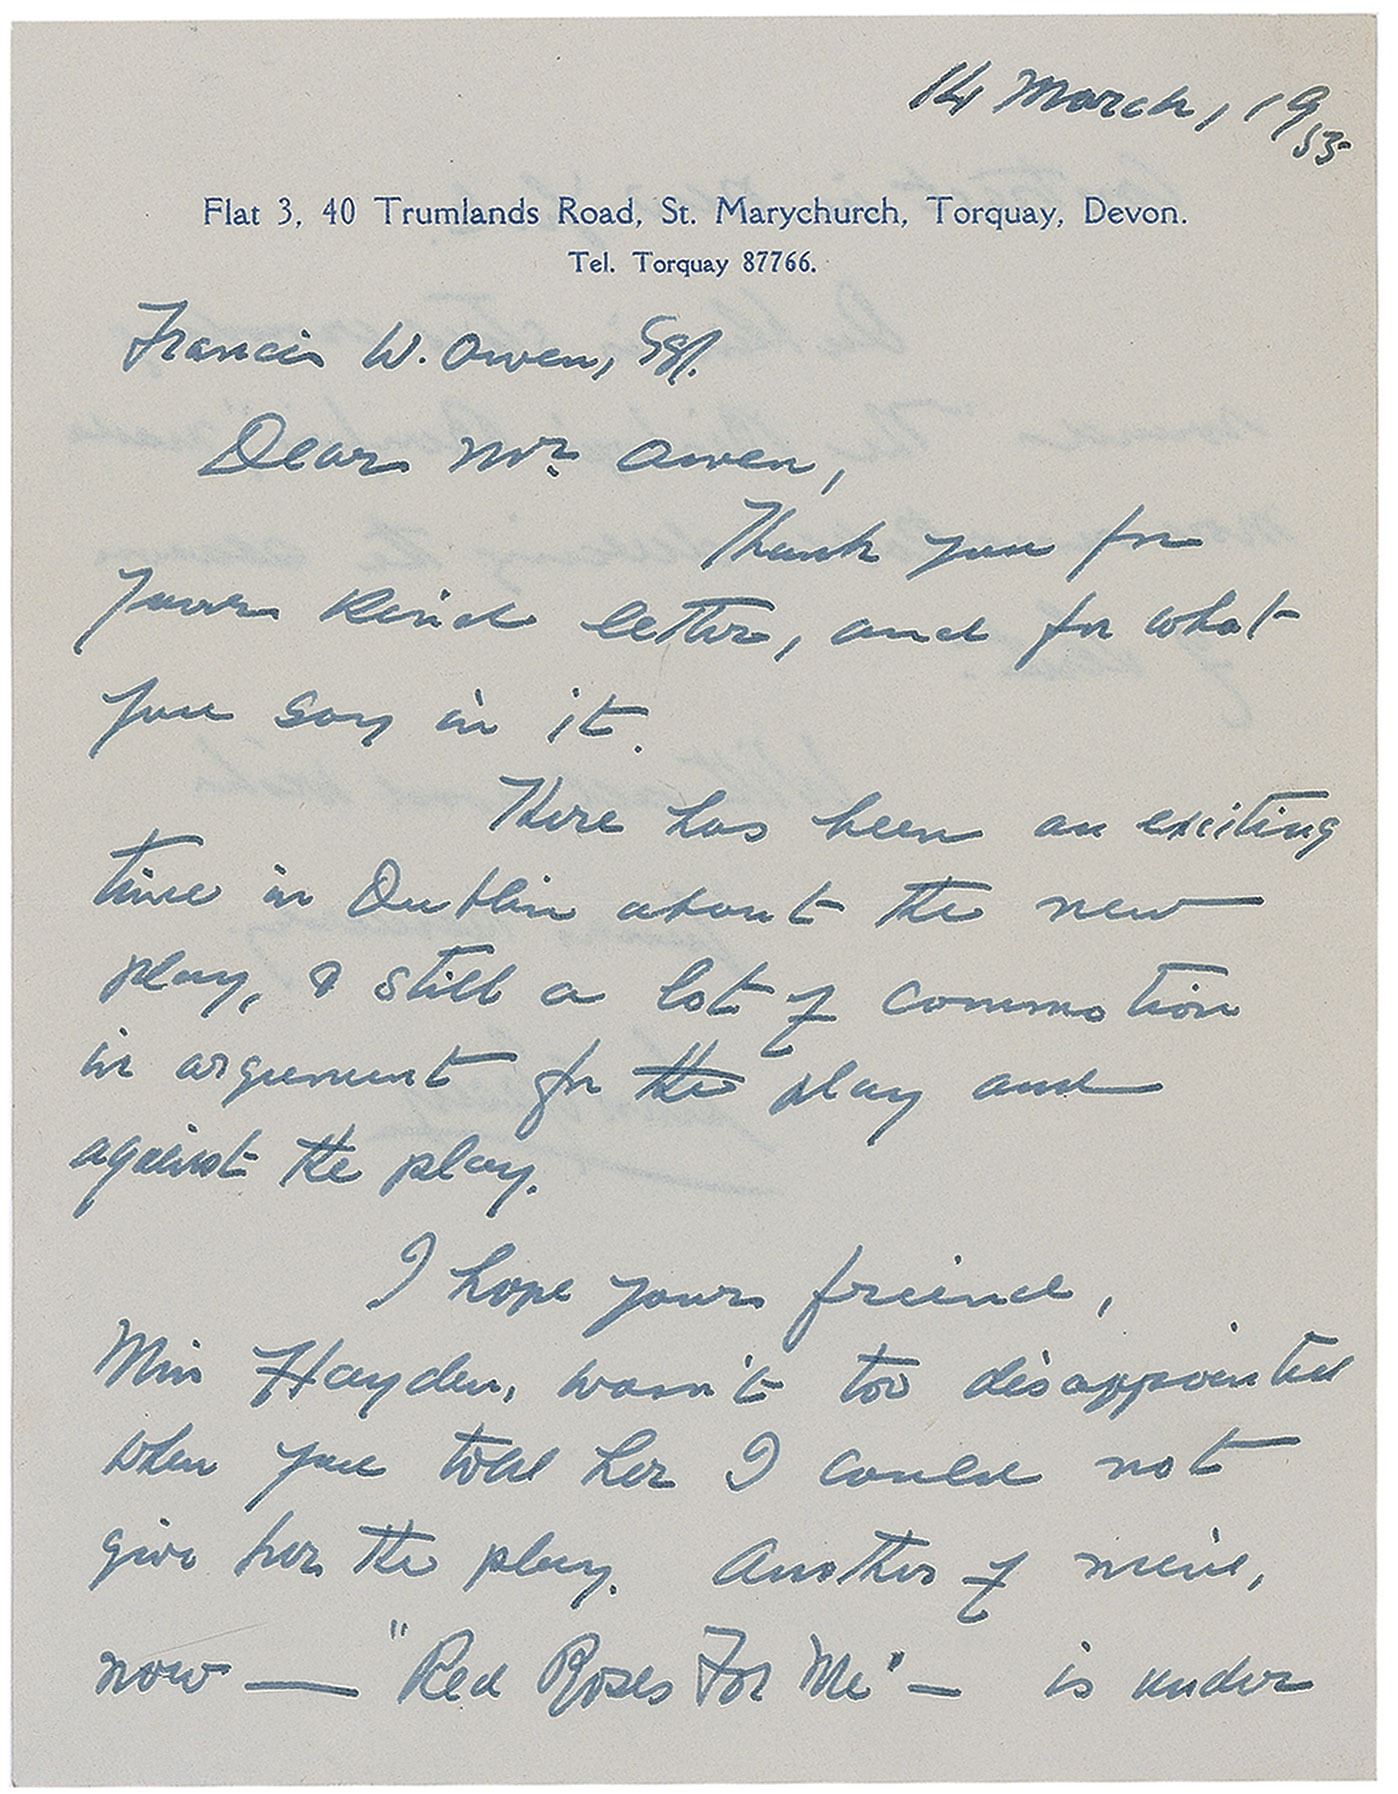 14 March, 1955
Flat 3, 40 Trumlands Road, St. Marychurch, Torquay, Devon.
Tel. Torquay 87766.
Francis W. Owen, Esq.
Dear Mr. Owen,
Thank you for
your kind letter, and for what
you say in it.
There has been an exciting
time in Dublin about the new
play, & still a lot of commotion
in argument for the play and
against the play.
I hope your friend,
Miss Hayden, wasn't too disappointed
when you told her I could not
give her the play. Another of mine,
now — "Red Roses For Me" — is under